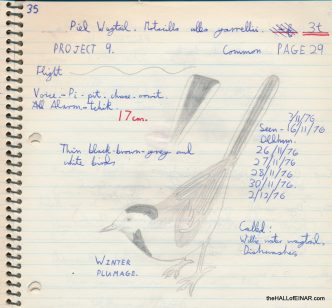 35
Pied Wagtail. Motacilla alba yarrellii. 3+
PROJECT 9. Common PAGE 29
Flight
Voice - Pi - pit. chase-
All Alarm - tchik
17cm.
Thin black-brown-grey and
white birds
7/11/76
Seen - 16/11/76
Oldham
26/11/76
27/11/76
28/11/76
30/11/76.
2/12/76
Called:
Willie water wagtail,
Dishwasher
WINTER
PLUMAGE.
theHALLofEINAR.com